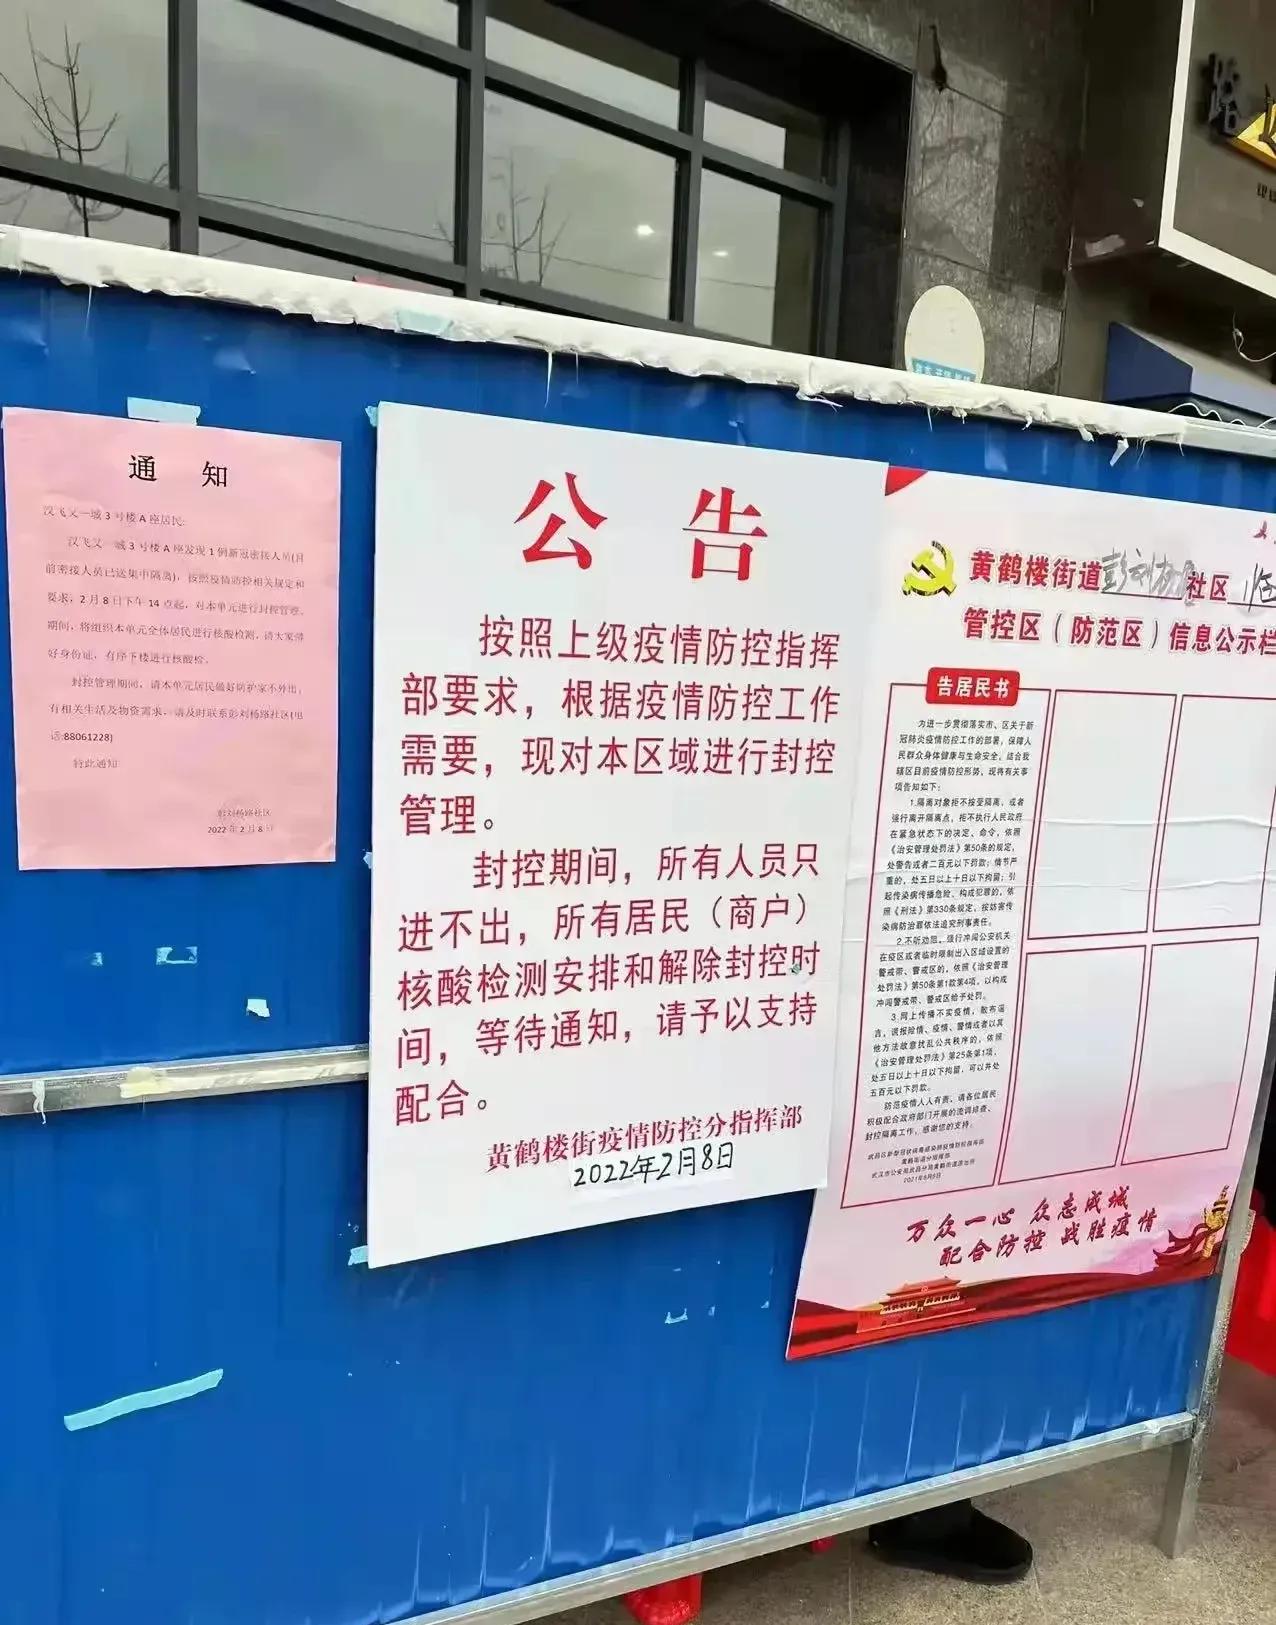 通 知
汉飞又一城3号楼A座居民:
汉飞又一城3号楼A座发现1例新冠密接人员(目
前密接人员已送集中隔离)，按照疫情防控相关规定和
要求，2月8日下午14点起，对本单元进行封控管理。
期间，将组织本单元全体居民进行核酸检测，请大家带
好身份证，有序下楼进行核酸检。
封控管理期间，请本单元居民做好防护家不外出，
有相关生活及物资需求，请及时联系彭刘杨路社区(电
话:88061228)
特此通知
彭刘杨路社区
2022年2月8日
公 告
按照上级疫情防控指挥
部要求，根据疫情防控工作
需要，现对本区域进行封控
管理。
封控期间，所有人员只
进不出，所有居民（商户）
核酸检测安排和解除封控时
间，等待通知，请予以支持
配合。
黄鹤楼街疫情防控分指挥部
2022年2月8日
黄鹤楼街道彭刘杨路社区 临
管控区（防范区）信息公示栏
告居民书
为进一步贯彻落实市、区关于新
冠肺炎疫情防控工作的部署，保障人
民群众身体健康与生命安全，结合我
辖区目前疫情防控形势，现将有关事
项告知如下：
1.隔离对象拒不接受隔离，或者
强行离开隔离点，拒不执行人民政府
在紧急状态下的决定、命令，依照
《治安管理处罚法》第50条的规定，
处警告或者二百元以下罚款；情节严
重的，处五日以上十日以下拘留；引
起传染病传播危险，构成犯罪的，依
照《刑法》第330条规定，按妨害传
染病防治罪依法追究刑事责任。
2.不听劝阻，强行冲闯公安机关
在疫区或者临时限制出入区域设置的
警戒带、警戒区的，依照《治安管理
处罚法》第50条第1款第4项，以构成
冲闯警戒带、警戒区给予处罚。
3.网上传播不实疫情，散布谣
言，谎报险情、疫情、警情或者以其
他方法故意扰乱公共秩序的，依照
《治安管理处罚法》第25条第1项，
处五日以上十日以下拘留，可以并处
五百元以下罚款。
防范疫情人人有责，请各位居民
积极配合政府部门开展的流调排查、
封控隔离工作，感谢您的支持。
武昌区新型冠状病毒感染肺疫情防控指挥部
黄鹤楼街道分指挥部
武汉市公安局武昌分局黄鹤楼街派出所
2021年8月9日
万众一心 众志成城
配合防控 战胜疫情